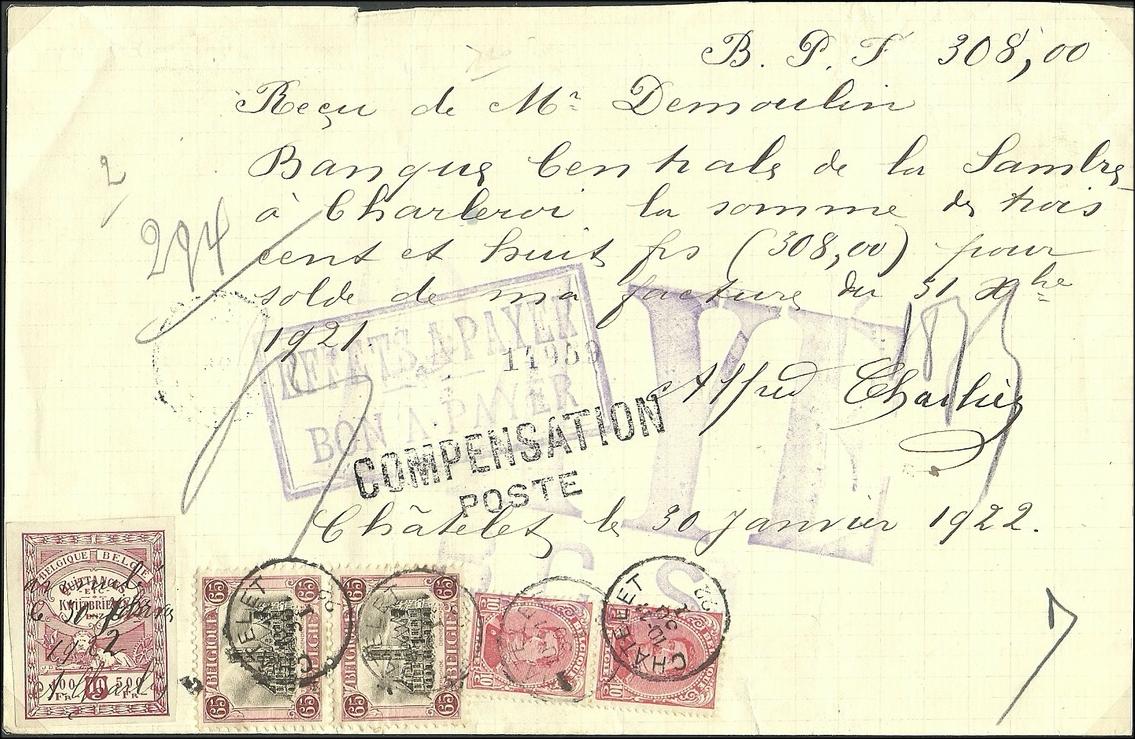 B. P. F 308,00
Reçu de Mr Demoulin
Banque Centrale de la Sambre
à Charleroi la somme de trois
cent et huit frs (308,00) pour
solde de ma facture du 31 Xbre
1921
294
EFFETS A PAYER
BON A PAYER
Alfred Charlier
COMPENSATION
POSTE
Châtelet le 30 Janvier 1922.
BELGIQUE BELGIË
QUITTANCES
ETC
KWIJTBRIEVEN
ENZ
le 30
1922
100 10 500
FR FR
65 65
BELGIQUE BELGIË
65 65
65 65
BELGIQUE BELGIË
65 65
10 10
10 10
CHATELET
CHATELET